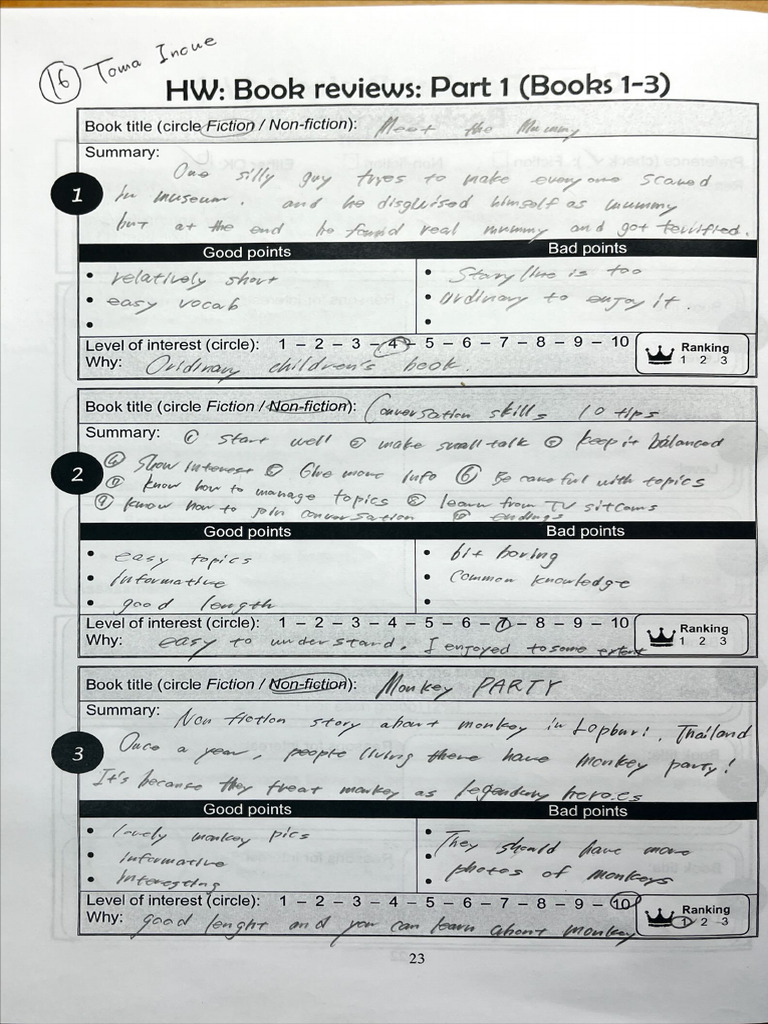 16 Toma Inoue
HW: Book reviews: Part 1 (Books 1-3)
Book title (circle Fiction / Non-fiction): Meet the Mummy
Summary:
One silly guy tryes to make everyone scared
1
in museum. and he disguised himself as mummy
but at the end he found real mummy and got terrified.
Good points Bad points
• relatively short • Story line is too
• easy vocab • ordinary to enjoy it.
• •
Level of interest (circle): 1 – 2 – 3 – 4 – 5 – 6 – 7 – 8 – 9 – 10 Ranking
Why: Oridinary children's book. 1 2 3
Book title (circle Fiction / Non-fiction): Conversation skills 10 tips
Summary: ① start well ② make small talk ③ keep it balanced
2
④ Show interest ⑤ Give more info ⑥ Be careful with topics
⑦ know how to manage topics ⑧ learn from TV sitcoms
⑨ know how to join conversation ⑩ endings
Good points Bad points
• easy topics • bit boring
• informative • common knowledge
• good length •
Level of interest (circle): 1 – 2 – 3 – 4 – 5 – 6 – 7 – 8 – 9 – 10 Ranking
Why: easy to understand. I enjoyed to some extent 1 2 3
Book title (circle Fiction / Non-fiction): Monkey PARTY
Summary: Non fiction story about monkey in Lopburi, Thailand
3
Once a year, people living there have monkey party!
It's because they treat monkey as legendary heroes
Good points Bad points
• lovely monkey pics • They should have more
• informative • photos of monkeys
• interesting •
Level of interest (circle): 1 – 2 – 3 – 4 – 5 – 6 – 7 – 8 – 9 – 10 Ranking
Why: good lenght and you can learn about monkey 1 2 3
23